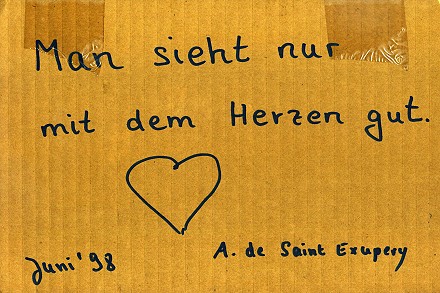 Man sieht nur
mit dem Herzen gut.
Juni '98
A. de Saint Exupery